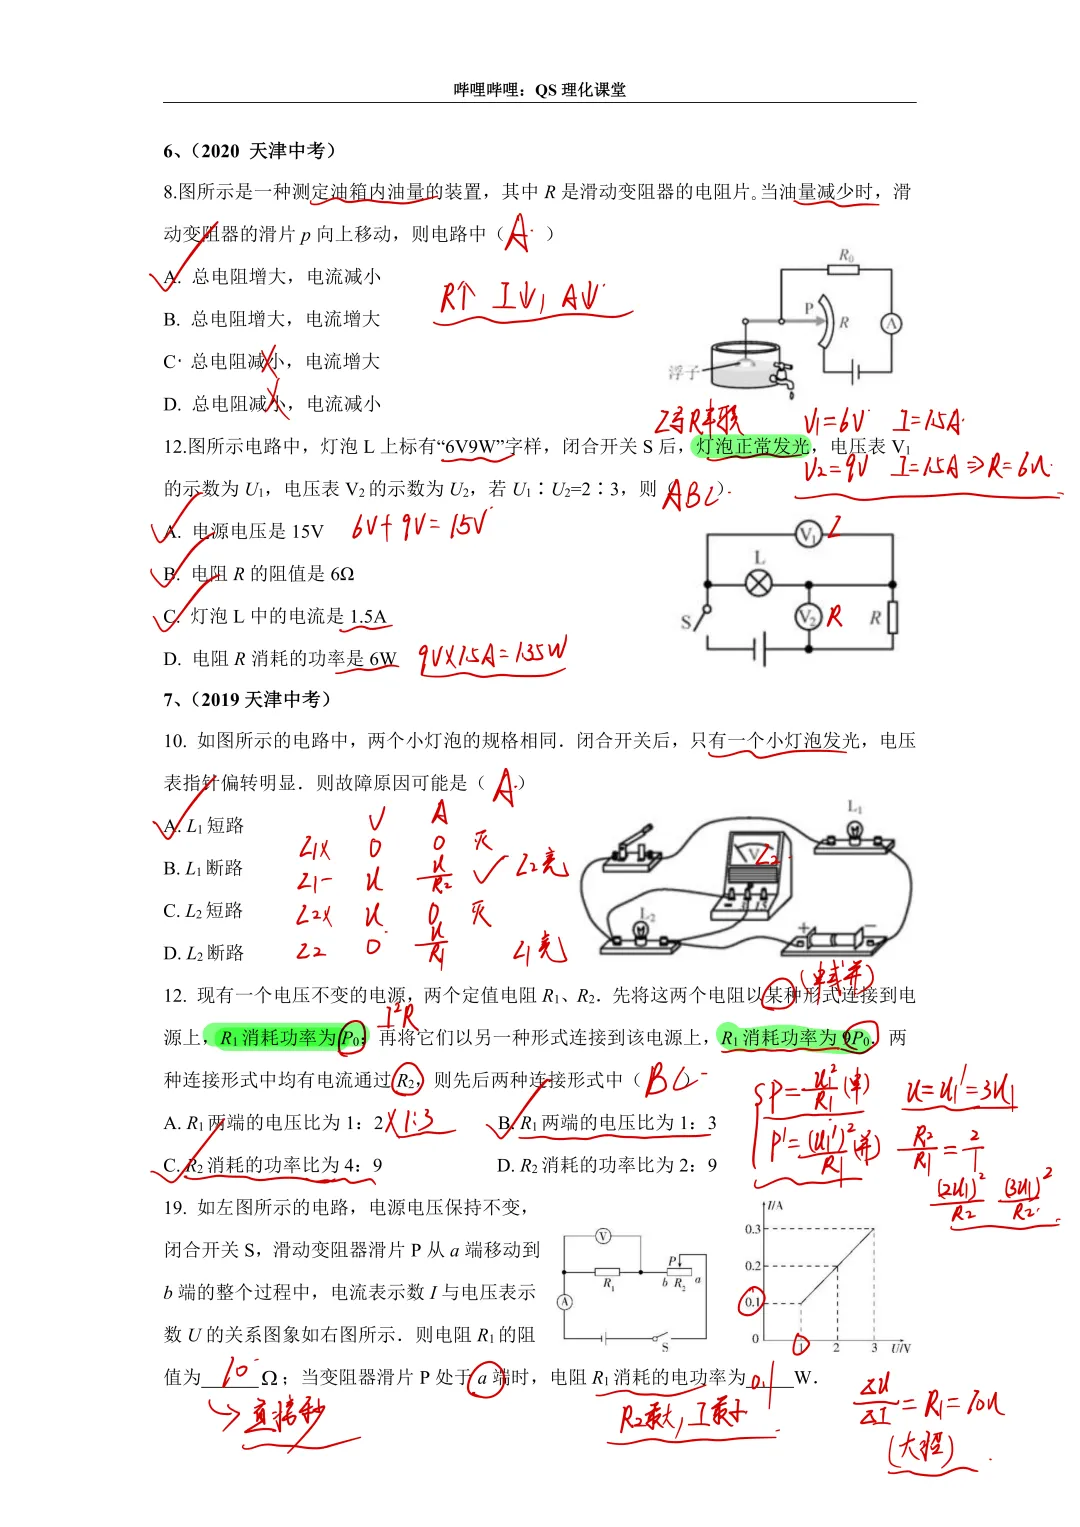 哔哩哔哩：QS 理化课堂
6、（2020 天津中考）
8.图所示是一种测定油箱内油量的装置，其中 R 是滑动变阻器的电阻片。当油量减少时，滑
动变阻器的滑片 p 向上移动，则电路中（ A. ）
A. 总电阻增大，电流减小
R↑ I↓，A↓
B. 总电阻增大，电流增大
C· 总电阻减小，电流增大
D. 总电阻减小，电流减小
R₀
P
R
A
浮子
L与R串联 V₁=6V I=1.5A.
12.图所示电路中，灯泡 L 上标有“6V9W”字样，闭合开关 S 后，灯泡正常发光，电压表 V₁
V₂=9V I=1.5A⇒R=6Ω.
的示数为 U₁，电压表 V₂的示数为 U₂，若 U₁∶U₂=2∶3，则（ ABC ）.
A. 电源电压是 15V 6V+9V=15V
B. 电阻 R 的阻值是 6Ω
C. 灯泡 L 中的电流是 1.5A
D. 电阻 R 消耗的功率是 6W 9V×1.5A=13.5W
V₁ L
L
S
V₂ R
R
7、（2019 天津中考）
10. 如图所示的电路中，两个小灯泡的规格相同．闭合开关后，只有一个小灯泡发光，电压
表指针偏转明显．则故障原因可能是（ A. ）
A. L₁短路
V A
L₁× 0 0 灭
B. L₁断路
L₁— U U/R₂ ✓ L₂亮
C. L₂短路
L₂× U 0 灭
D. L₂断路
L₂ 0 U/R₁ L₁亮
L₁
V L₂.
L₂
+ −
(串或并)
12. 现有一个电压不变的电源，两个定值电阻 R₁、R₂．先将这两个电阻以某种形式连接到电
I²R
源上，R₁消耗功率为 P₀；再将它们以另一种形式连接到该电源上，R₁消耗功率为 9P₀．两
种连接形式中均有电流通过 R₂，则先后两种连接形式中（ BC ）
A. R₁两端的电压比为 1：2 ×1:3 B. R₁两端的电压比为 1：3
C. R₂消耗的功率比为 4：9 D. R₂消耗的功率比为 2：9
P=U₁²/R₁(串) U=U₁'=3U₁
P'=(U₁')²/R₁(并) R₂/R₁=2/1
(2U₁)²/R₂ (3U₁)²/R₂.
19. 如左图所示的电路，电源电压保持不变，
闭合开关 S，滑动变阻器滑片 P 从 a 端移动到
b 端的整个过程中，电流表示数 I 与电压表示
数 U 的关系图象如右图所示．则电阻 R₁的阻
值为 10 Ω；当变阻器滑片 P 处于 a 端时，电阻 R₁消耗的电功率为 0.1 W．
V
R₁
P
b R₂ a
A
S
I/A
0.3
0.2
0.1
0 1 2 3 U/V
→直接秒
R₂最大，I最小
ΔU/ΔI=R₁=10Ω
(大招)